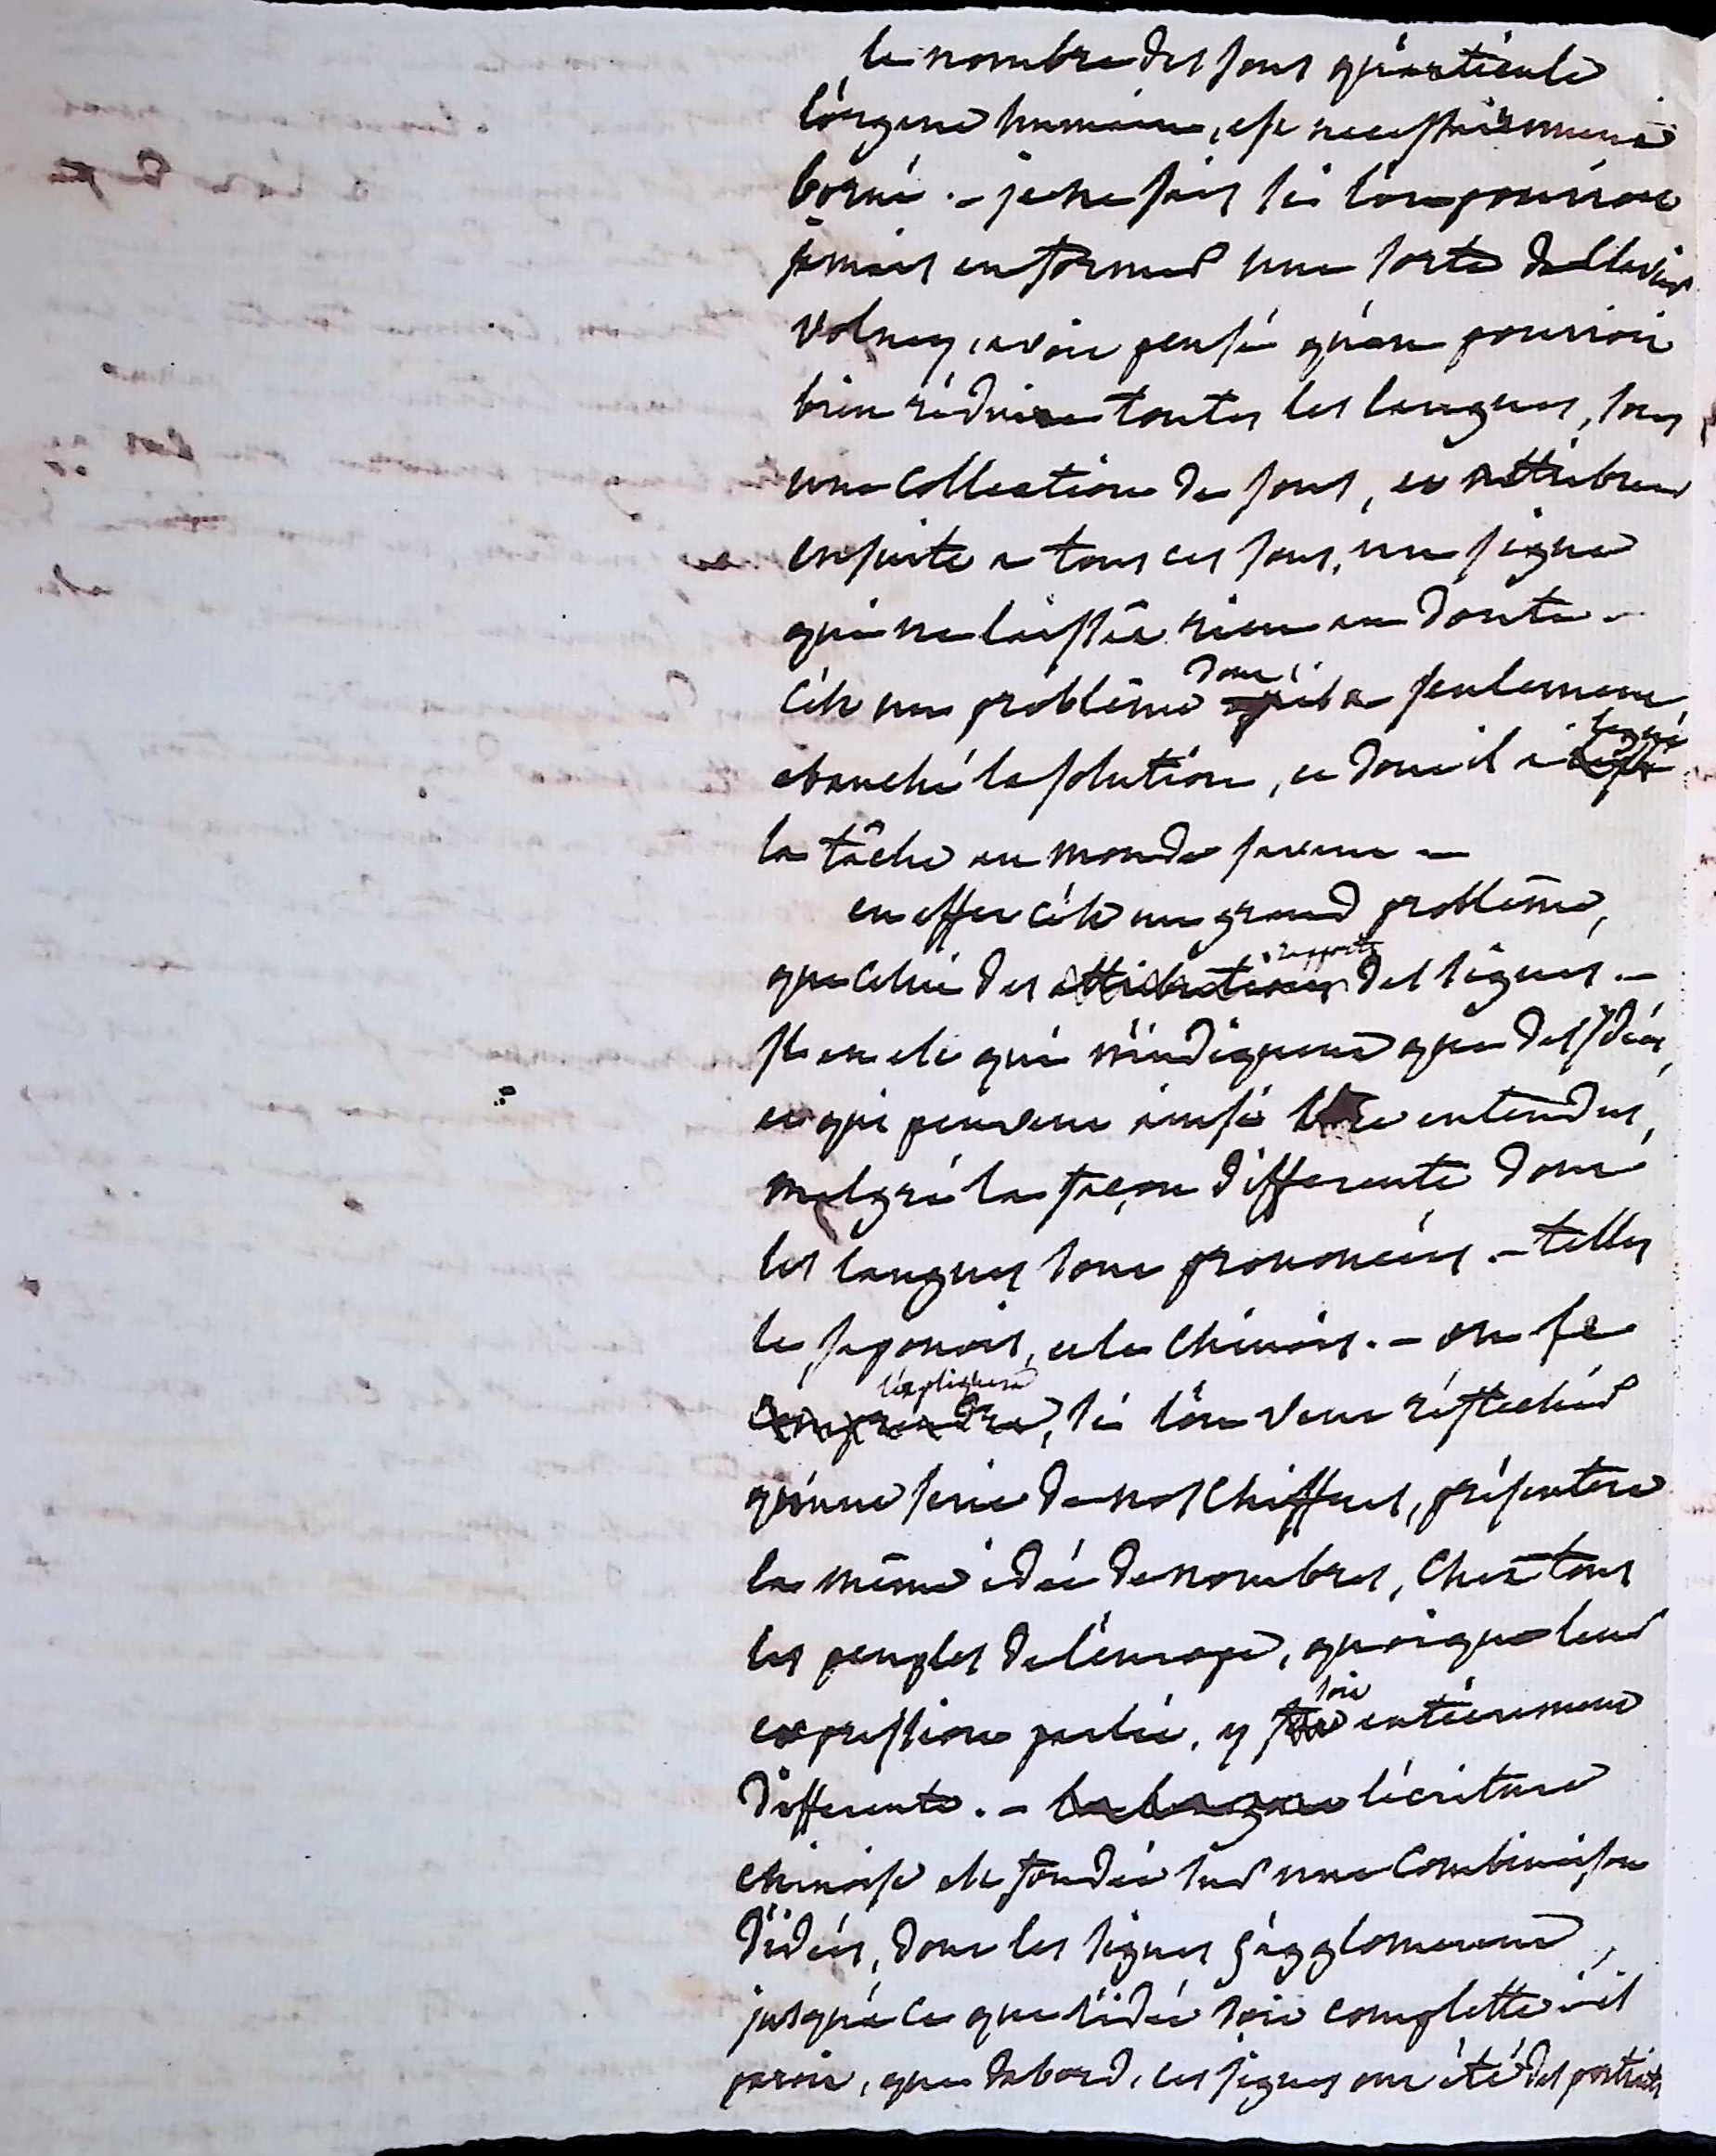 le nombre des sons qu'articule
l'organe humain, est necessairement
borné. - je ne sais si l'on pourroit
jamais en former une sorte de clavier
volney, avoit pensé qu'on pourroit
bien réduire toutes les langues, sous
une collection de sons, et attribuer
ensuite a tous ces sons, un signe
qui ne laissât rien au doute -
c'est un problême dont il a seulement
ebauché la solution, et dont il a legué
la tâche au monde savant -
en effet c'est un grand problême,
que celui des rapports des signes. -
Il en est qui n'indiquent que des idées,
et qui peuvent ainsi être entendus,
malgré la façon differente dont
les langues sont prononcées. - telles
le japonois, et le chinois. - on se
l'expliquera, si l'on veut réflechir
qu'une serie de nos chiffres, présentera
la même idée de nombres, chez tous
les peuples de l'europe, quoique leur
expression parlée, y soit entierement
differente. - la langue l'écriture
chinoise est fondée sur une combinaison
d'idées, dont les signes s'agglomerent,
jusqu'à ce que l'idée soit complette il
paroit, que dabord, ces signes ont été des portraits